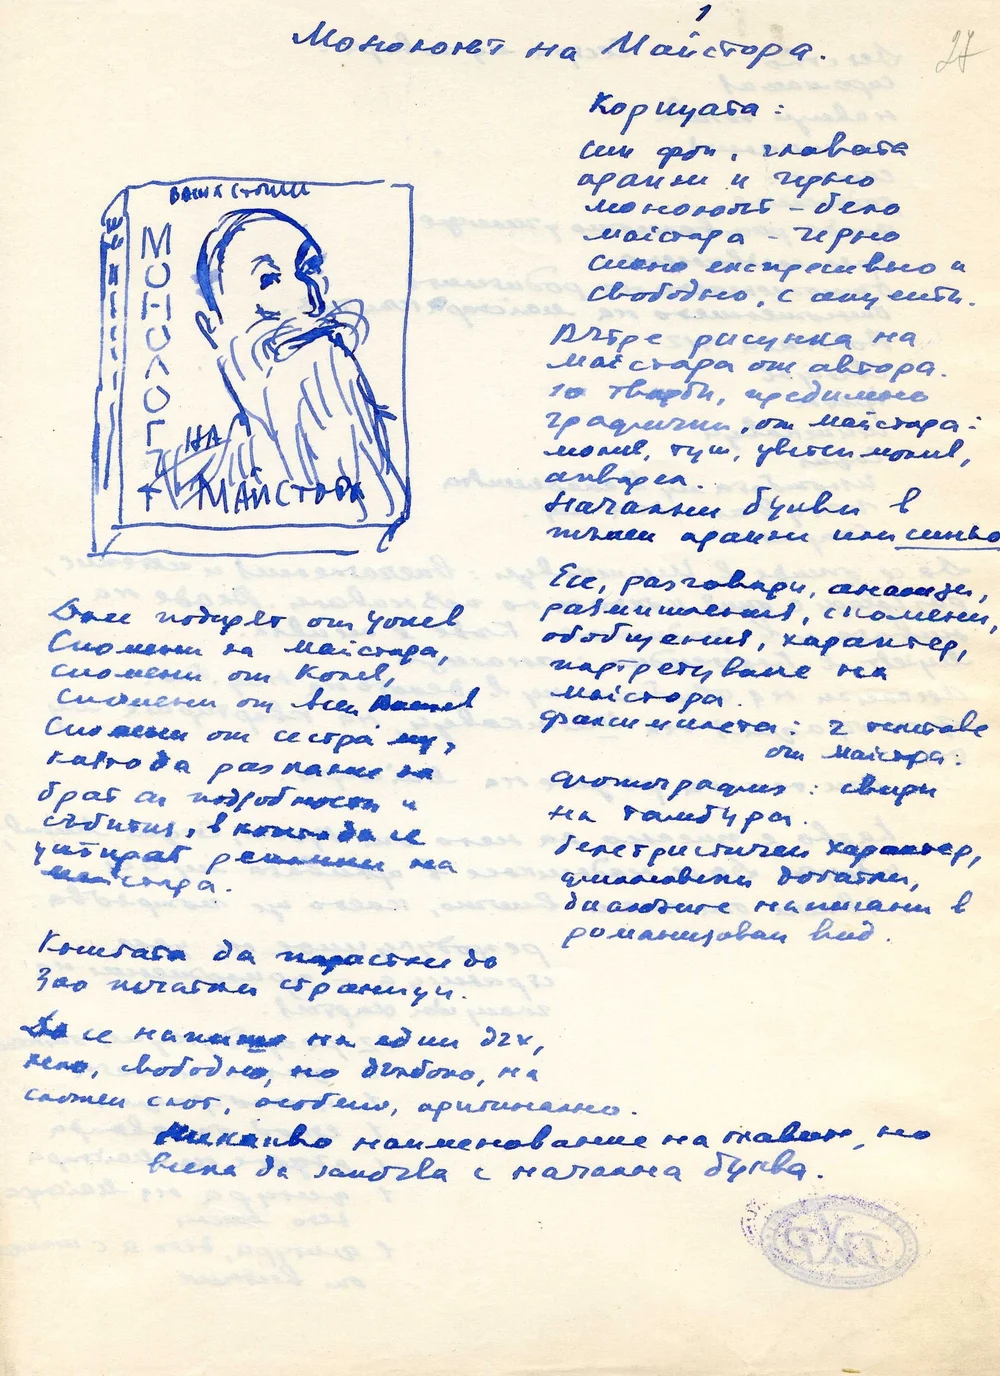 1
Монологът на Майстора.
27
Корицата:
син фон, главата
оранж и черно
монологът – бело
майстора – черно
силно експресивно и
свободно, с акценти.
Вътре рисунка на
майстора от автора.
10 творби, предимно
графични, от майстора:
молив, туш, цветен молив,
акварел.
Начални букви в
оранж или синьо
Есе, разговори, анализи,
размишления, спомени,
обобщения, характер,
портретуване на
майстора.
факсимилета: 2 текстове
от майстора:
фотография: свири
на тамбура.
белетристичен характер,
филмовски добавки,
диалозите написани в
романизован вид.
ВАНЯ СТОИЛИ
МОНОЛОГЪТ
НА
МАЙСТОРА
Цонев
Спомени на майстора,
спомени от Колев,
спомени от
Спомени от сестра му,
която да разкаже за
брат си подробности и
събития, в които да се
реплики на
майстора.
Книгата да нарастне до
300 печатни страници.
Да се напише на един дъх,
леко, свободно, но дълбоко, на
сложен слог, особено, оригинално.
Никакво наименование на глави, но
всяка да започва с начална буква.